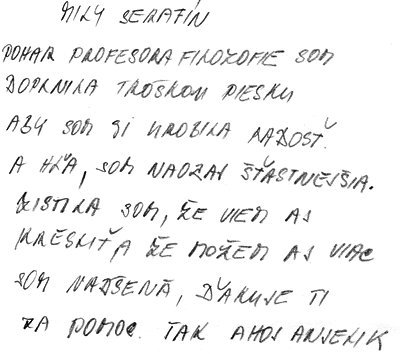 MILÝ SERAFÍN
POHAR PROFESORA FILOZOFIE SOM
DOPLNILA TROŠKOU PIESKU
ABY SOM SI UROBILA RADOSŤ.
A HĽA, SOM NAOZAJ ŠŤASTNEJŠIA.
ZISTILA SOM, ŽE VIEM AJ
KRESLIŤ A ŽE MOŽEM AJ VIAC
SOM NADŠENÁ, ĎAKUJE TI
ZA POMOC. TAK AHOJ ANJELIK